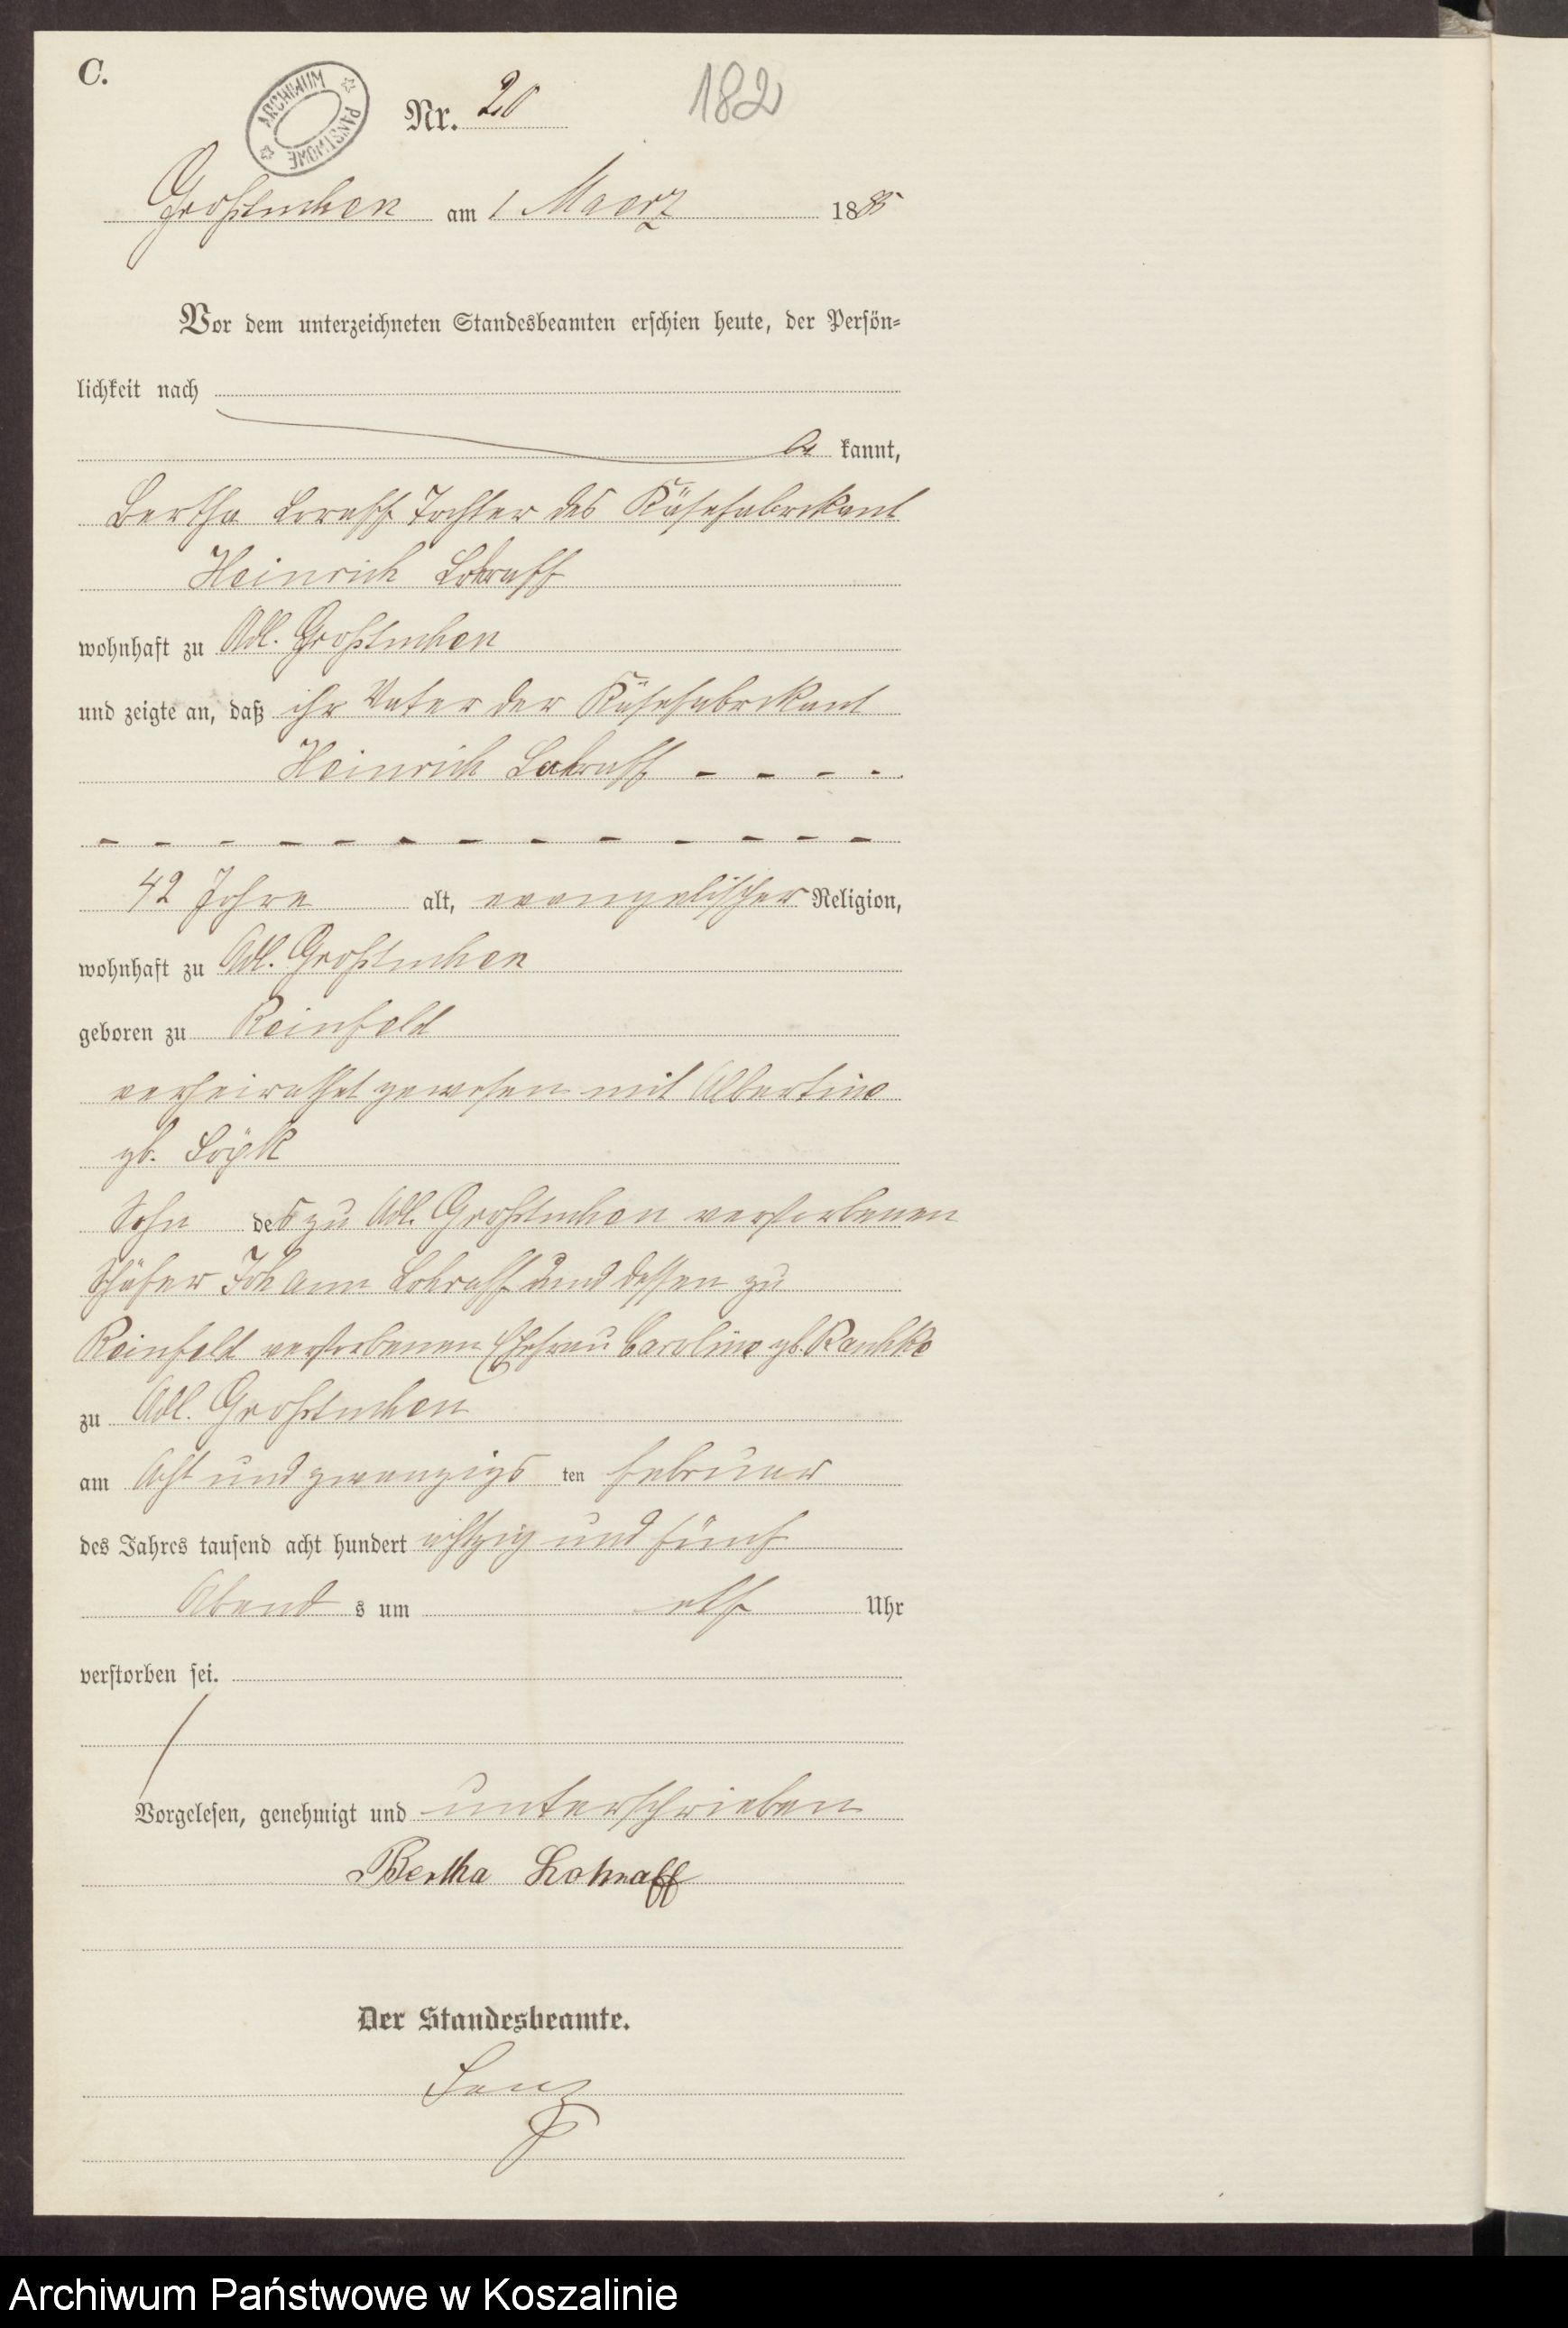 C.
ARCHIWUM PAŃSTWOWE
Nr. 20
182
Großtuchen am 1 Maerz 1885
Vor dem unterzeichneten Standesbeamten erschien heute, der Persön-
lichkeit nach
be kannt,
Bertha Tochter des Käsefabrikant
Heinrich Lohraff
wohnhaft zu Adl. Großtuchen
und zeigte an, daß ihr Vater der Käsefabrikant
Heinrich Lohraff - - - -
- - - - - - - - - - - - -
42 Jahre alt, evangelischer Religion,
wohnhaft zu Adl. Großtuchen
geboren zu Reinfeld
verheirathet gewesen mit Albertine
gb.
Sohn des zu Adl. Großtuchen verstorbenen
Schäfer Johann Lohraff und dessen zu
Reinfeld verstorbenen Ehefrau Caroline gb.
zu Adl. Großtuchen
am Acht und zwanzigs ten Februar
des Jahres tausend acht hundert achtzig und fünf
Abend s um elf Uhr
verstorben sei.
Vorgelesen, genehmigt und unterschrieben
Bertha Lohraff
Der Standesbeamte.
Lenz
Archiwum Państwowe w Koszalinie